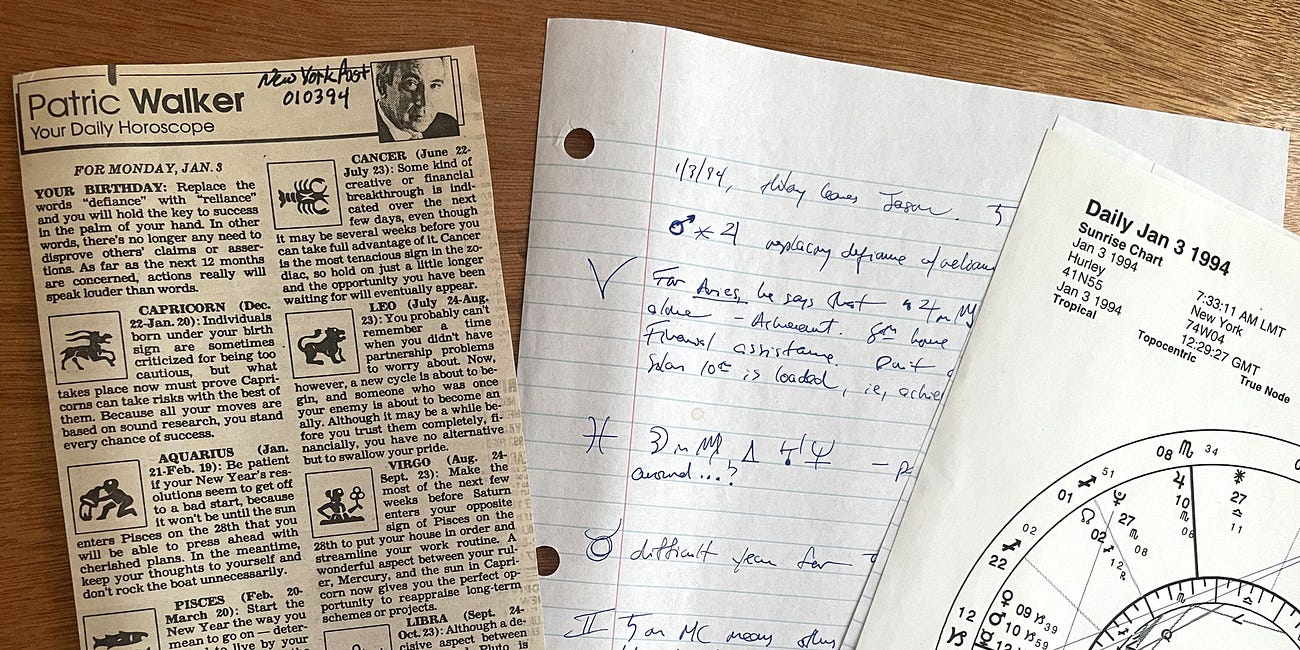 New York Post
010394
Patric Walker
Your Daily Horoscope
FOR MONDAY, JAN. 3
YOUR BIRTHDAY: Replace the
words “defiance” with “reliance”
and you will hold the key to success
in the palm of your hand. In other
words, there's no longer any need to
disprove others' claims or asser-
tions. As far as the next 12 months
are concerned, actions really will
speak louder than words.
CAPRICORN (Dec.
22-Jan. 20): Individuals
born under your birth
sign are sometimes
criticized for being too
cautious, but what
takes place now must prove Capri-
corns can take risks with the best of
them. Because all your moves are
based on sound research, you stand
every chance of success.
AQUARIUS (Jan.
21-Feb. 19): Be patient
if your New Year's res-
olutions seem to get off
to a bad start, because
it won't be until the sun
enters Pisces on the 28th that you
will be able to press ahead with
cherished plans. In the meantime,
keep your thoughts to yourself and
don't rock the boat unnecessarily.
PISCES (Feb. 20-
March 20): Start the
New Year the way you
mean to go on — deter-
to live by your
CANCER (June 22-
July 23): Some kind of
creative or financial
breakthrough is indi-
cated over the next
few days, even though
it may be several weeks before you
can take full advantage of it. Cancer
is the most tenacious sign in the zo-
diac, so hold on just a little longer
and the opportunity you have been
waiting for will eventually appear.
LEO (July 24-Aug.
23): You probably can't
remember a time
when you didn't have
partnership problems
to worry about. Now,
however, a new cycle is about to be-
gin, and someone who was once
your enemy is about to become an
ally. Although it may be a while be-
fore you trust them completely, fi-
nancially, you have no alternative
but to swallow your pride.
VIRGO (Aug. 24-
Sept. 23): Make the
most of the next few
weeks before Saturn
enters your opposite
sign of Pisces on the
28th to put your house in order and
streamline your work routine. A
wonderful aspect between your rul-
er, Mercury, and the sun in Capri-
corn now gives you the perfect op-
portunity to reappraise long-term
schemes or projects.
LIBRA (Sept. 24-
Oct. 23): Although a de-
cisive aspect between
Pluto is
1/3/94, Jason. ♄
♂ ⚹ ♃ replacing defiance w/reliance
✓ For Aries, he says that ♃ ♏
alone - 8th home
Financial assistance.
Solar 10th is loaded, ie,
♓ ☽ in ♍ △ ♅♆ -
around...?
♉ difficult year for
♊ ♄ on MC means
Daily Jan 3 1994
Sunrise Chart
Jan 3 1994
Hurley
41N55
Jan 3 1994
Tropical
7:33:11 AM LMT
New York
74W04
12:29:27 GMT
Topocentric
True Node
08 ♏ 34
51 ♐ 01
02 ♐ 22
12 ♑
♃ 10 ♏ 08
27 ♎ 11
♇ 27 ♏ 08
☊ 02 ♐ 12 ℞
♀ 09 ♑ 39
10 ♑ 59